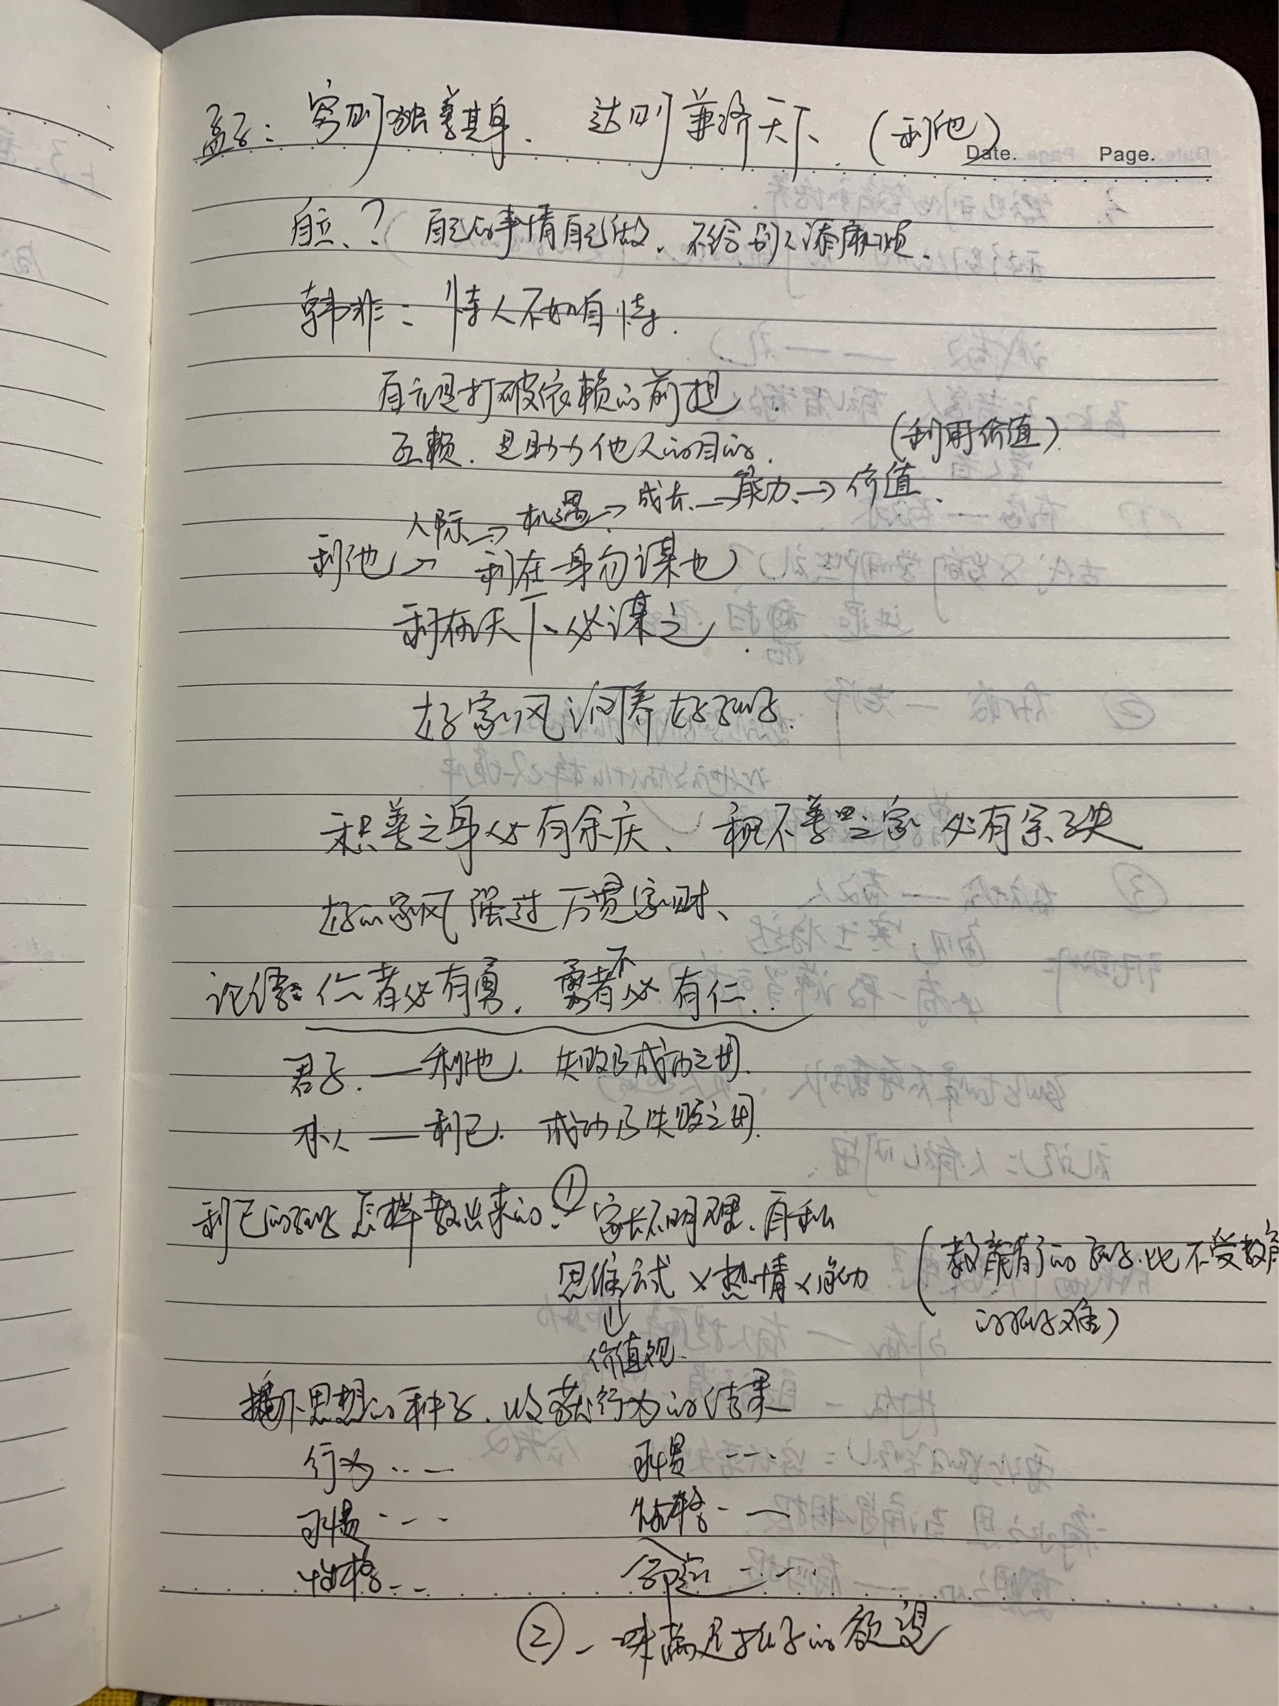 孟子：穷则独善其身、达则兼济天下、（利他）
Date. Page.
自立、？自己的事情自己做、不给别人添麻烦.
韩非：恃人不如自恃.
自立是打破依赖的前提.
互赖.是助力他人的目的. （利用价值）
人际→机遇→成长→能力→价值.
利他→利在身勿谋也
利在天下必谋之.
好家风润养好孩子.
积善之身必有余庆、积不善之家必有余殃
好的家风强过万贯家财、
论语 仁者必有勇. 勇者不必有仁.
君子.—利他. 失败乃成功之母.
小人—利己. 成功乃失败之母.
利己的孩子怎样教出来的. ①家长不明理.自私
思维方式×热情×能力 （教育的孩子.比不受教育
价值观. 的孩子难）
播下思想的种子.收获行为的结果
行为 … 习惯 …
习惯 … 性格 …
性格 … 命运 …
②一味满足孩子的欲望